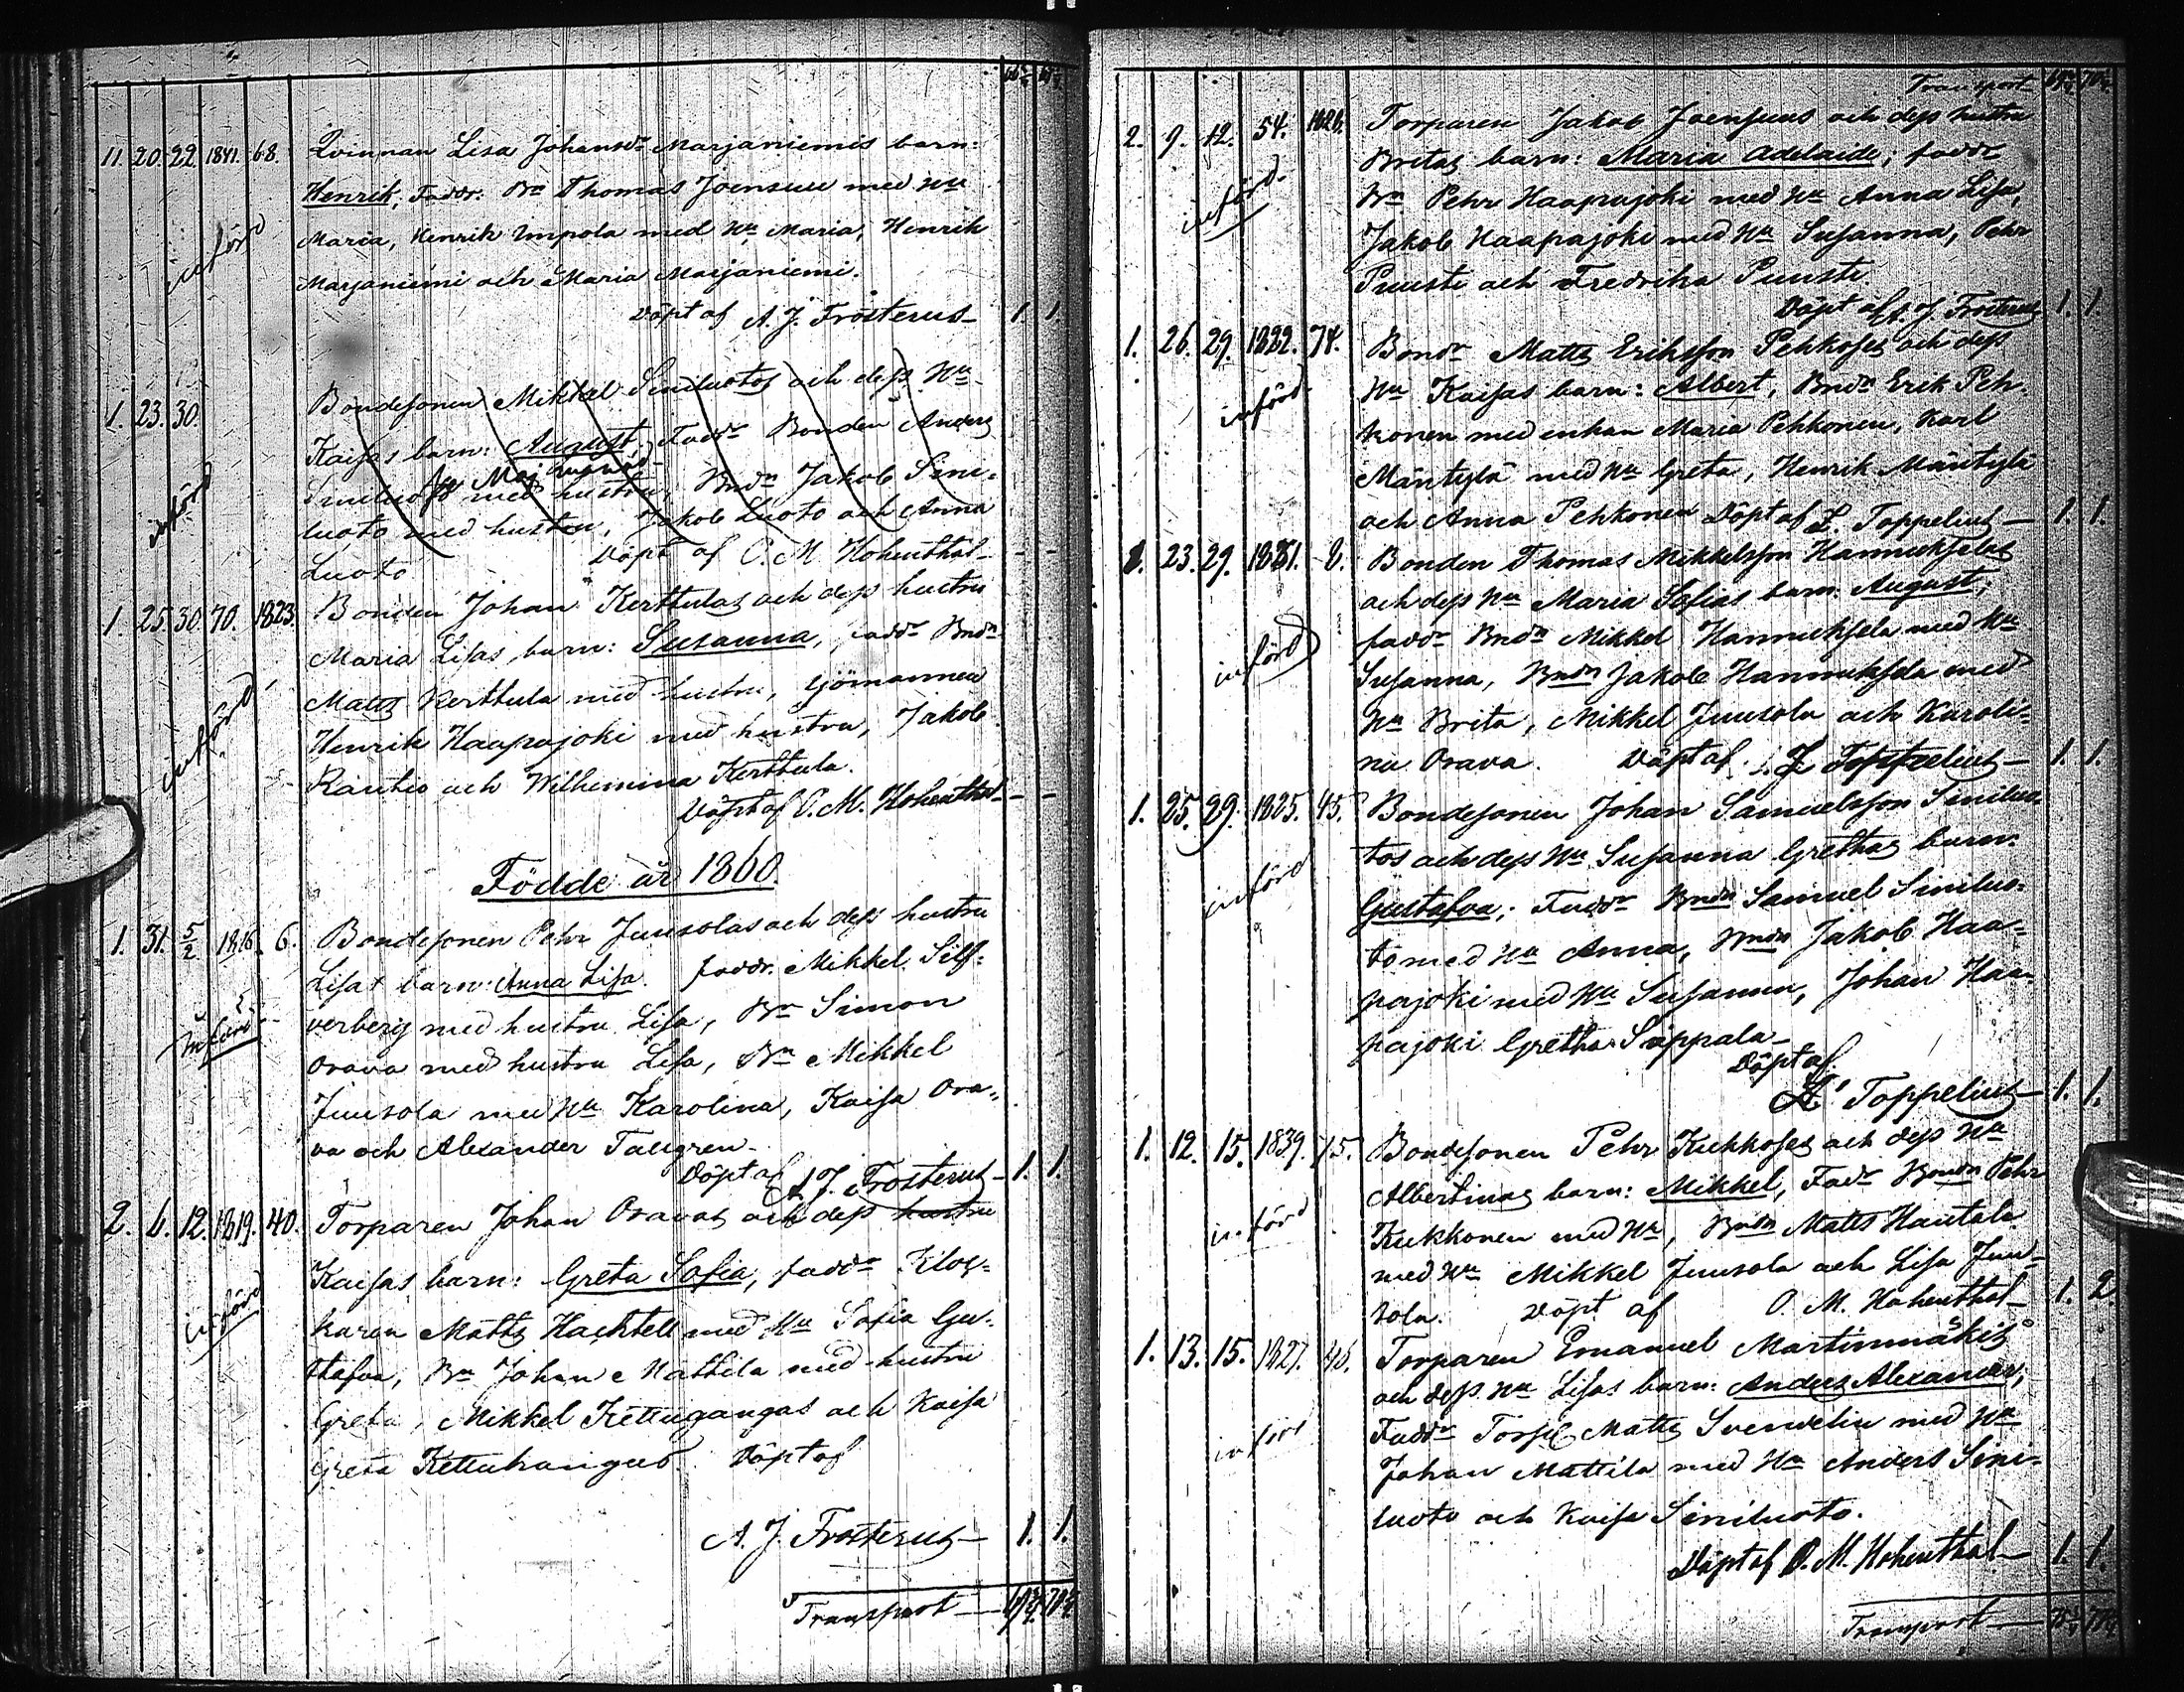 11. 20. 22. 1841. 68. Qvinnan Lisa Johansdr Marjaniemis barn:
Henrik, Faddr. Bn Thomas Joensuu med Hu
införd Maria, Henrik Impola med Hu Maria, Henrik
Marjaniemi och Maria Marjaniemi.
Döpt af A. J. Frosterus 1. 1.
1. 23. 30. Bondesonen Mikkel Siniluotos och dess Hu
Kaisas barn: August, Faddr Bonden Anders
införd Siniluoto med hustru, Bndn Jakob Sini-
luoto med hustru, Jakob Luoto och Anna
Luoto Döpt af O. M. Hohenthal - -
1. 25. 30. 70. 1823. Bonden Johan Kerttulas och dess hustru
Maria Lisas barn: Susanna, faddr Bndn
Matts Kerttula med hustru, Sjömannen
införd Henrik Haapajoki med hustru, Jakob
Rautio och Wilhemina Kerttula.
Döpt af O. M. Hohenthal - -
Födde år 1860.
1. 31. 5/2 1816. 6. Bondesonen Pehr Juusolas och dess hustru
Lisas barn: Anna Lisa. faddr. Mikkel Silf-
införd verberg med hustru Lisa, Bn Simon
Orava med hustru Lisa, Bn Mikkel
Juusola med Hu Karolina, Kaisa Ora-
va och Alexander Tallgren.
Döpt af A J. Frosterus 1. 1.
2. 6. 12. 1819. 40. Torparen Johan Oravas och dess hustru
Kaisas barn: Greta Sofia, faddr Kloc-
införd karen Matts Hachtell med Hu Sofia Gu-
stafva, Bn Johan Mattila med hustru
Greta, Mikkel Kettugangas och Kaisa
Greta Kettukangas. Döpt af
A. J. Frosterus 1. 1.
Transport
Transport
2. 9. 12. 54. 1826. Torparen Jakob Joensuus och dess hustru
Britas barn: Maria Adelaide; faddr
införd Bn Pehr Haapajoki med Hu Anna Lisa,
Jakob Haapajoki med Hu Susanna, Pehr
Puusti och Fredrika Puusti.
Döpt af A. J. Frosterus 1. 1.
1. 26. 29. 1822. 74. Bondn Matts Eriksson Pehkoses och dess
införd Hu Kaisas barn: Albert, Bndn Erik Peh-
konen med enkan Maria Pehkonen, Karl
Mäntylä med Hu Greta, Henrik Mäntylä
och Anna Pehkonen Döpt af L. Toppelius 1. 1.
2. 23. 29. 1831. 2. Bonden Thomas Mikkelsson Hannukselas
och dess Hu Maria Sofias barn: August;
faddr Bndn Mikkel Hannuksela med Hu
införd Susanna, Bndn Jakob Hannuksela med
Hu Brita, Mikkel Juusola och Karoli-
na Orava. Döpt af L Toppelius 1. 1.
1. 25. 29. 1825. 45. Bondesonen Johan Samuelsson Siniluo-
tos och dess Hu Susanna Grethas barn:
införd Gustafva; Faddr Bndn Samuel Siniluo-
to med Hu Anna, Bndn Jakob Haa-
pajoki med Hu Susanna, Johan Haa-
pajoki Gretha Sippala
Döpt af
L Toppelius 1. 1.
1. 12. 15. 1839. 75. Bondesonen Pehr Kukkoses och dess Hu
Albertinas barn: Mikkel, Fadr Bndn Pehr
införd Kukkonen med Hu, Bndn Matts Hautala
med Hu Mikkel Juusola och Lisa Juu-
sola. Döpt af O. M. Hohenthal 1. 2.
1. 13. 15. 1827. 45. Torparen Emanuel Martinmäkis
och dess Hu Lisas barn: Anders Alexander,
införd Faddr Torp Matts Svenvelin med Hu
Johan Mattila med Hu Anders Sini-
luoto och Kaisa Siniluoto.
Döpt af O. M. Hohenthal 1. 1.
Transport